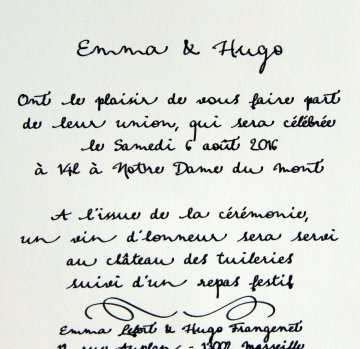 Emma & Hugo
Ont le plaisir de vous faire part
de leur union, qui sera célébrée
le Samedi 6 août 2016
à 14h à Notre Dame du mont
A l'issue de la cérémonie,
un vin d'honneur sera servi
au château des tuileries
suivi d'un repas festif
Emma Lefort & Hugo Frangenet
rue - 13002 Marseille